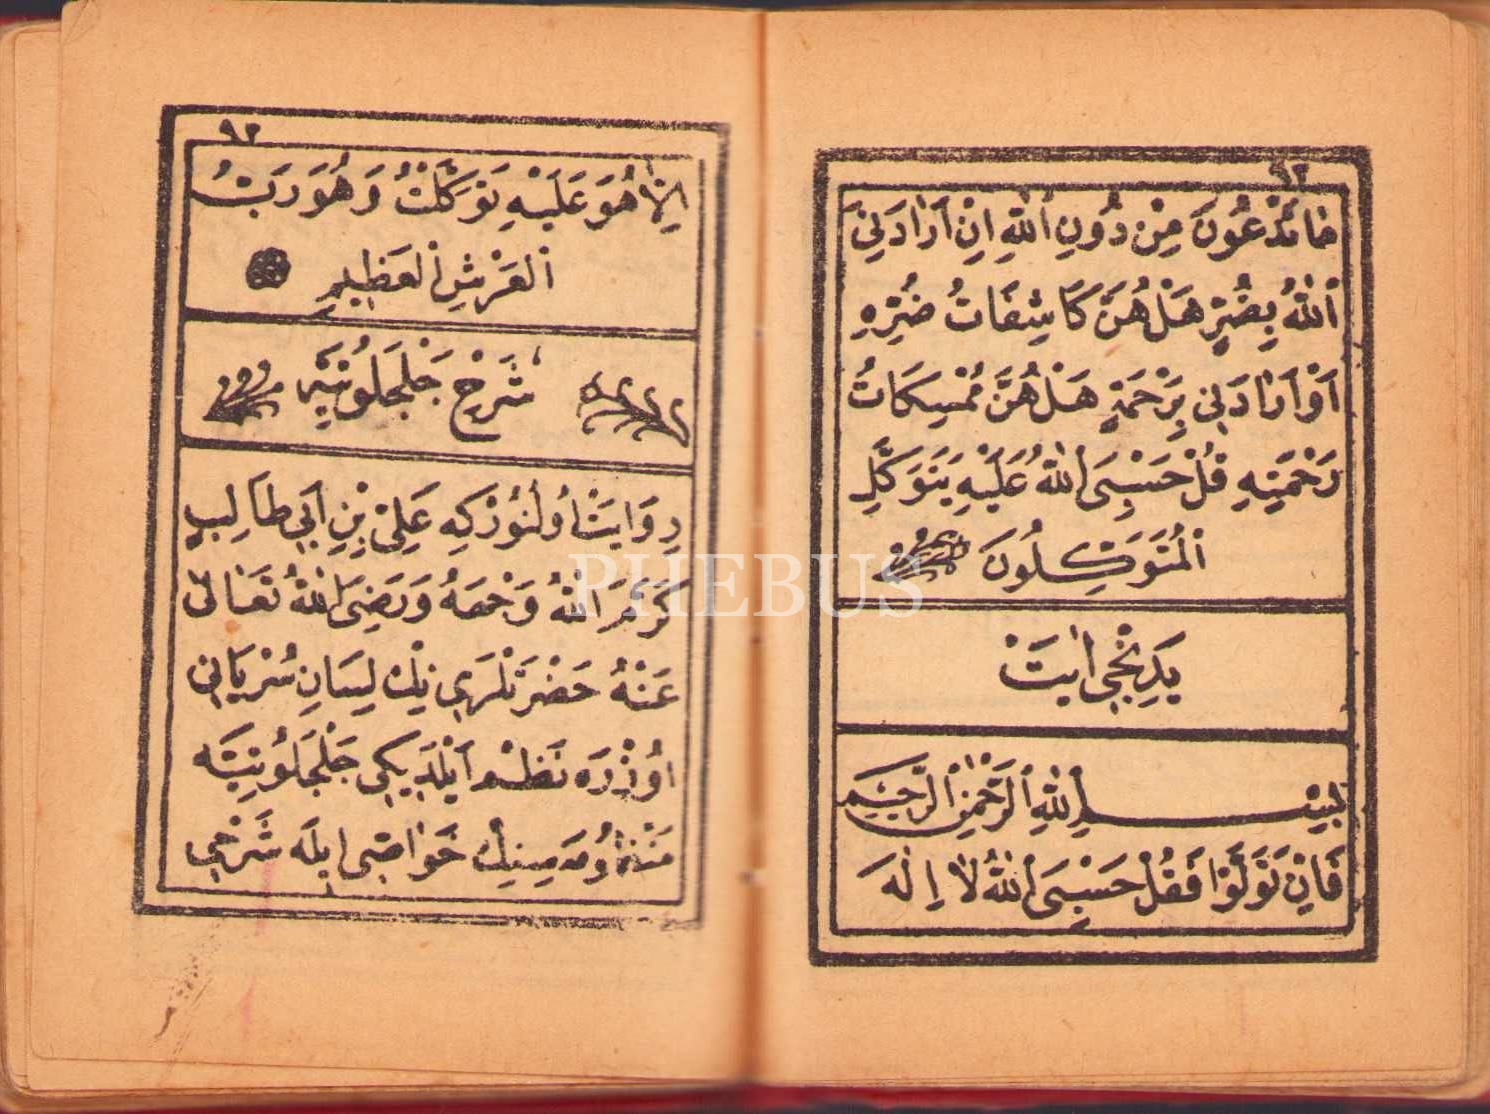 ٩٢
مَا تَدْعُونَ مِنْ دُونِ ٱللّٰهِ اِنْ اَرَادَنِيَ
ٱللّٰهُ بِضُرٍّ هَلْ هُنَّ كَاشِفَاتُ ضُرِّهِ
اَوْ اَرَادَنِى بِرَحْمَةٍ هَلْ هُنَّ مُمْسِكَاتُ
رَحْمَتِهِ قُلْ حَسْبِىَ ٱللّٰهُ عَلَيْهِ يَتَوَكَّلُ
ٱلْمُتَوَكِّلُونَ
يَدِنْجِى اٰيَتْ
بِسْمِ ٱللّٰهِ ٱلرَّحْمٰنِ ٱلرَّحِيمِ
فَاِنْ تَوَلَّوْا فَقُلْ حَسْبِىَ ٱللّٰهُ لَا اِلٰهَ
٩٣
اِلَّا هُوَ عَلَيْهِ تَوَكَّلْتُ وَهُوَ رَبُّ
ٱلْعَرْشِ ٱلْعَظِيمِ
شَرْحِ جَلْجَلُوتِيَّه
رِوَايَتْ اُولُنُورْكِه عَلِىِّ بْنِ اَبِى طَالِبٍ
كَرَّمَ ٱللّٰهُ وَجْهَهُ وَرَضِىَ ٱللّٰهُ تَعَالٰى
عَنْهُ حَضْرَتْلَرِى نِكْ لِسَانِ سُرْيَانِى
اُوزْرَه نَظْمْ اَيْلَدِيكِى جَلْجَلُوتِيَّه
مَنْظُومَه سِنِكْ خَوَاصِّى اِيلَه شَرْحِى
PHEBUS